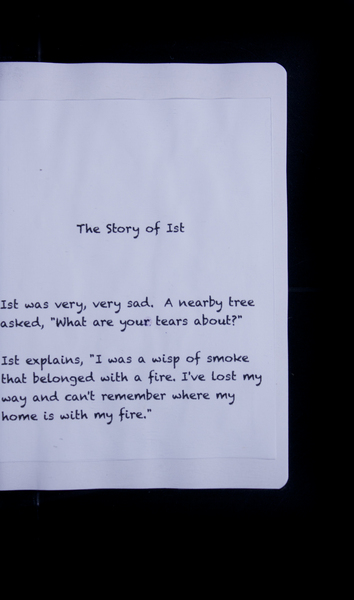 The Story of Ist
Ist was very, very sad. A nearby tree
asked, "What are your tears about?"
Ist explains, "I was a wisp of smoke
that belonged with a fire. I've lost my
way and can't remember where my
home is with my fire."